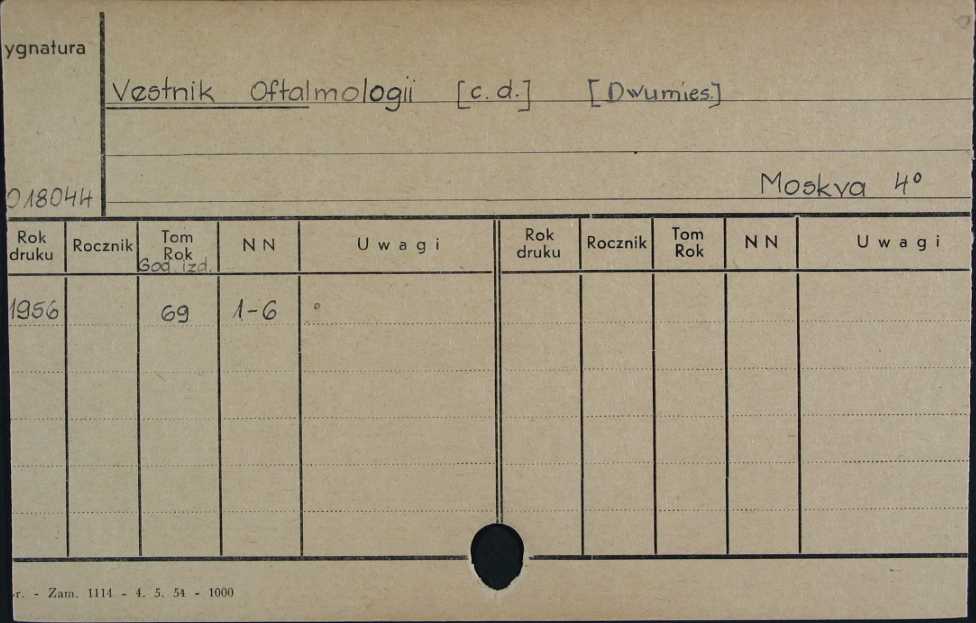 ygnatura
Vestnik Oftalmologii [c.d.] [Dwumies.]
Moskva 4°
018044
Rok druku Rocznik Tom Rok God izd. NN Uwagi Rok druku Rocznik Tom Rok NN Uwagi
1956 69 1-6
r. - Zam. 1114 - 4. 5. 54 - 1000